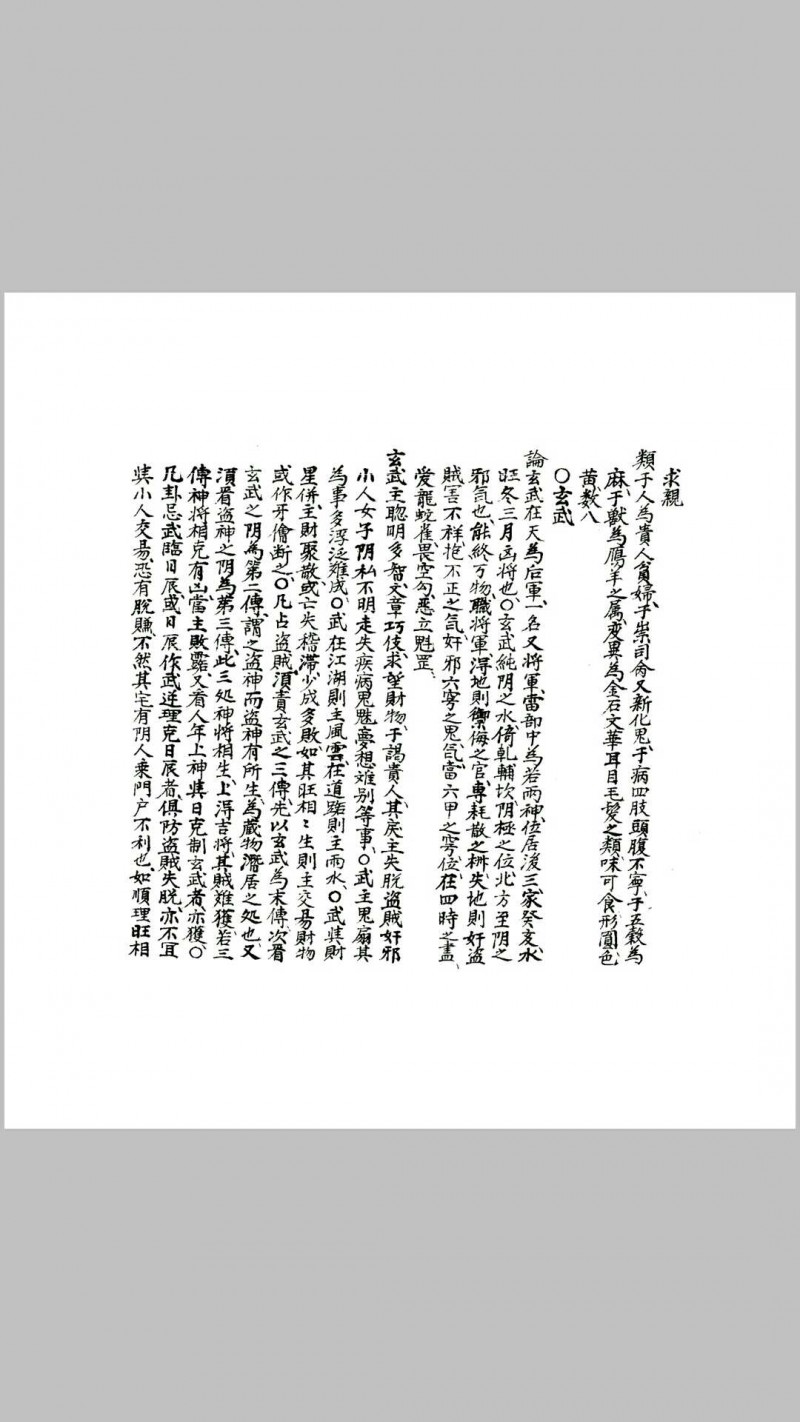 求親
類于人為貴人貧婦于祟司侖又新化鬼于病四肢頭腹不寧于五穀為
麻于獸為鴈羊之属变異為金石文華耳目毛髪之類味可食形圓色
黄数八
〇玄武
論玄武在天為后軍一名又將軍當部中為若雨神位居後三家癸亥水
旺冬三月凶将也〇玄武純阴之水倚乹輔坎阴極之位北方至阴之
邪气也能終万物職将軍得地則禦侮之官専耗散之柄失地則奸盗
賊害不祥抱不正之気奸邪六穷之鬼气當六甲之穷位在四時之盡
爱龍蛇雀畏空勾悪立魁罡
玄武主聪明多智文章巧使求望財物于謁貴人其戾主失脱盗賊奸邪
小人女子阴私不明走失疾病鬼魅夢想难别等事〇武主鬼扇其
為事多浮泛难成〇武在江湖則主風雲在道路則主雨水〇武㒷財
星併主財聚散或亡失稽滞少成多敗如其旺相〻生則主交易財物
或作牙儈断之〇凡占盗賊湏責玄武之三傳先以玄武為末傳次看
玄武之阴為第二傳謂之盗神而盗神有所生為蔵物潛居之処也又
湏看盗神之阴為第三傳此三処神将相生上得吉将其賊难獲若三
傳神将相克有凶當主敗露又看人年上神㒷日克制玄武者亦獲〇
凡卦忌武臨日辰或日辰作武逆理克日辰者俱防盗賊失脱亦不宜
㒷小人交易恐有脱賺不然其宅有阴人乘門户不利也如順理旺相